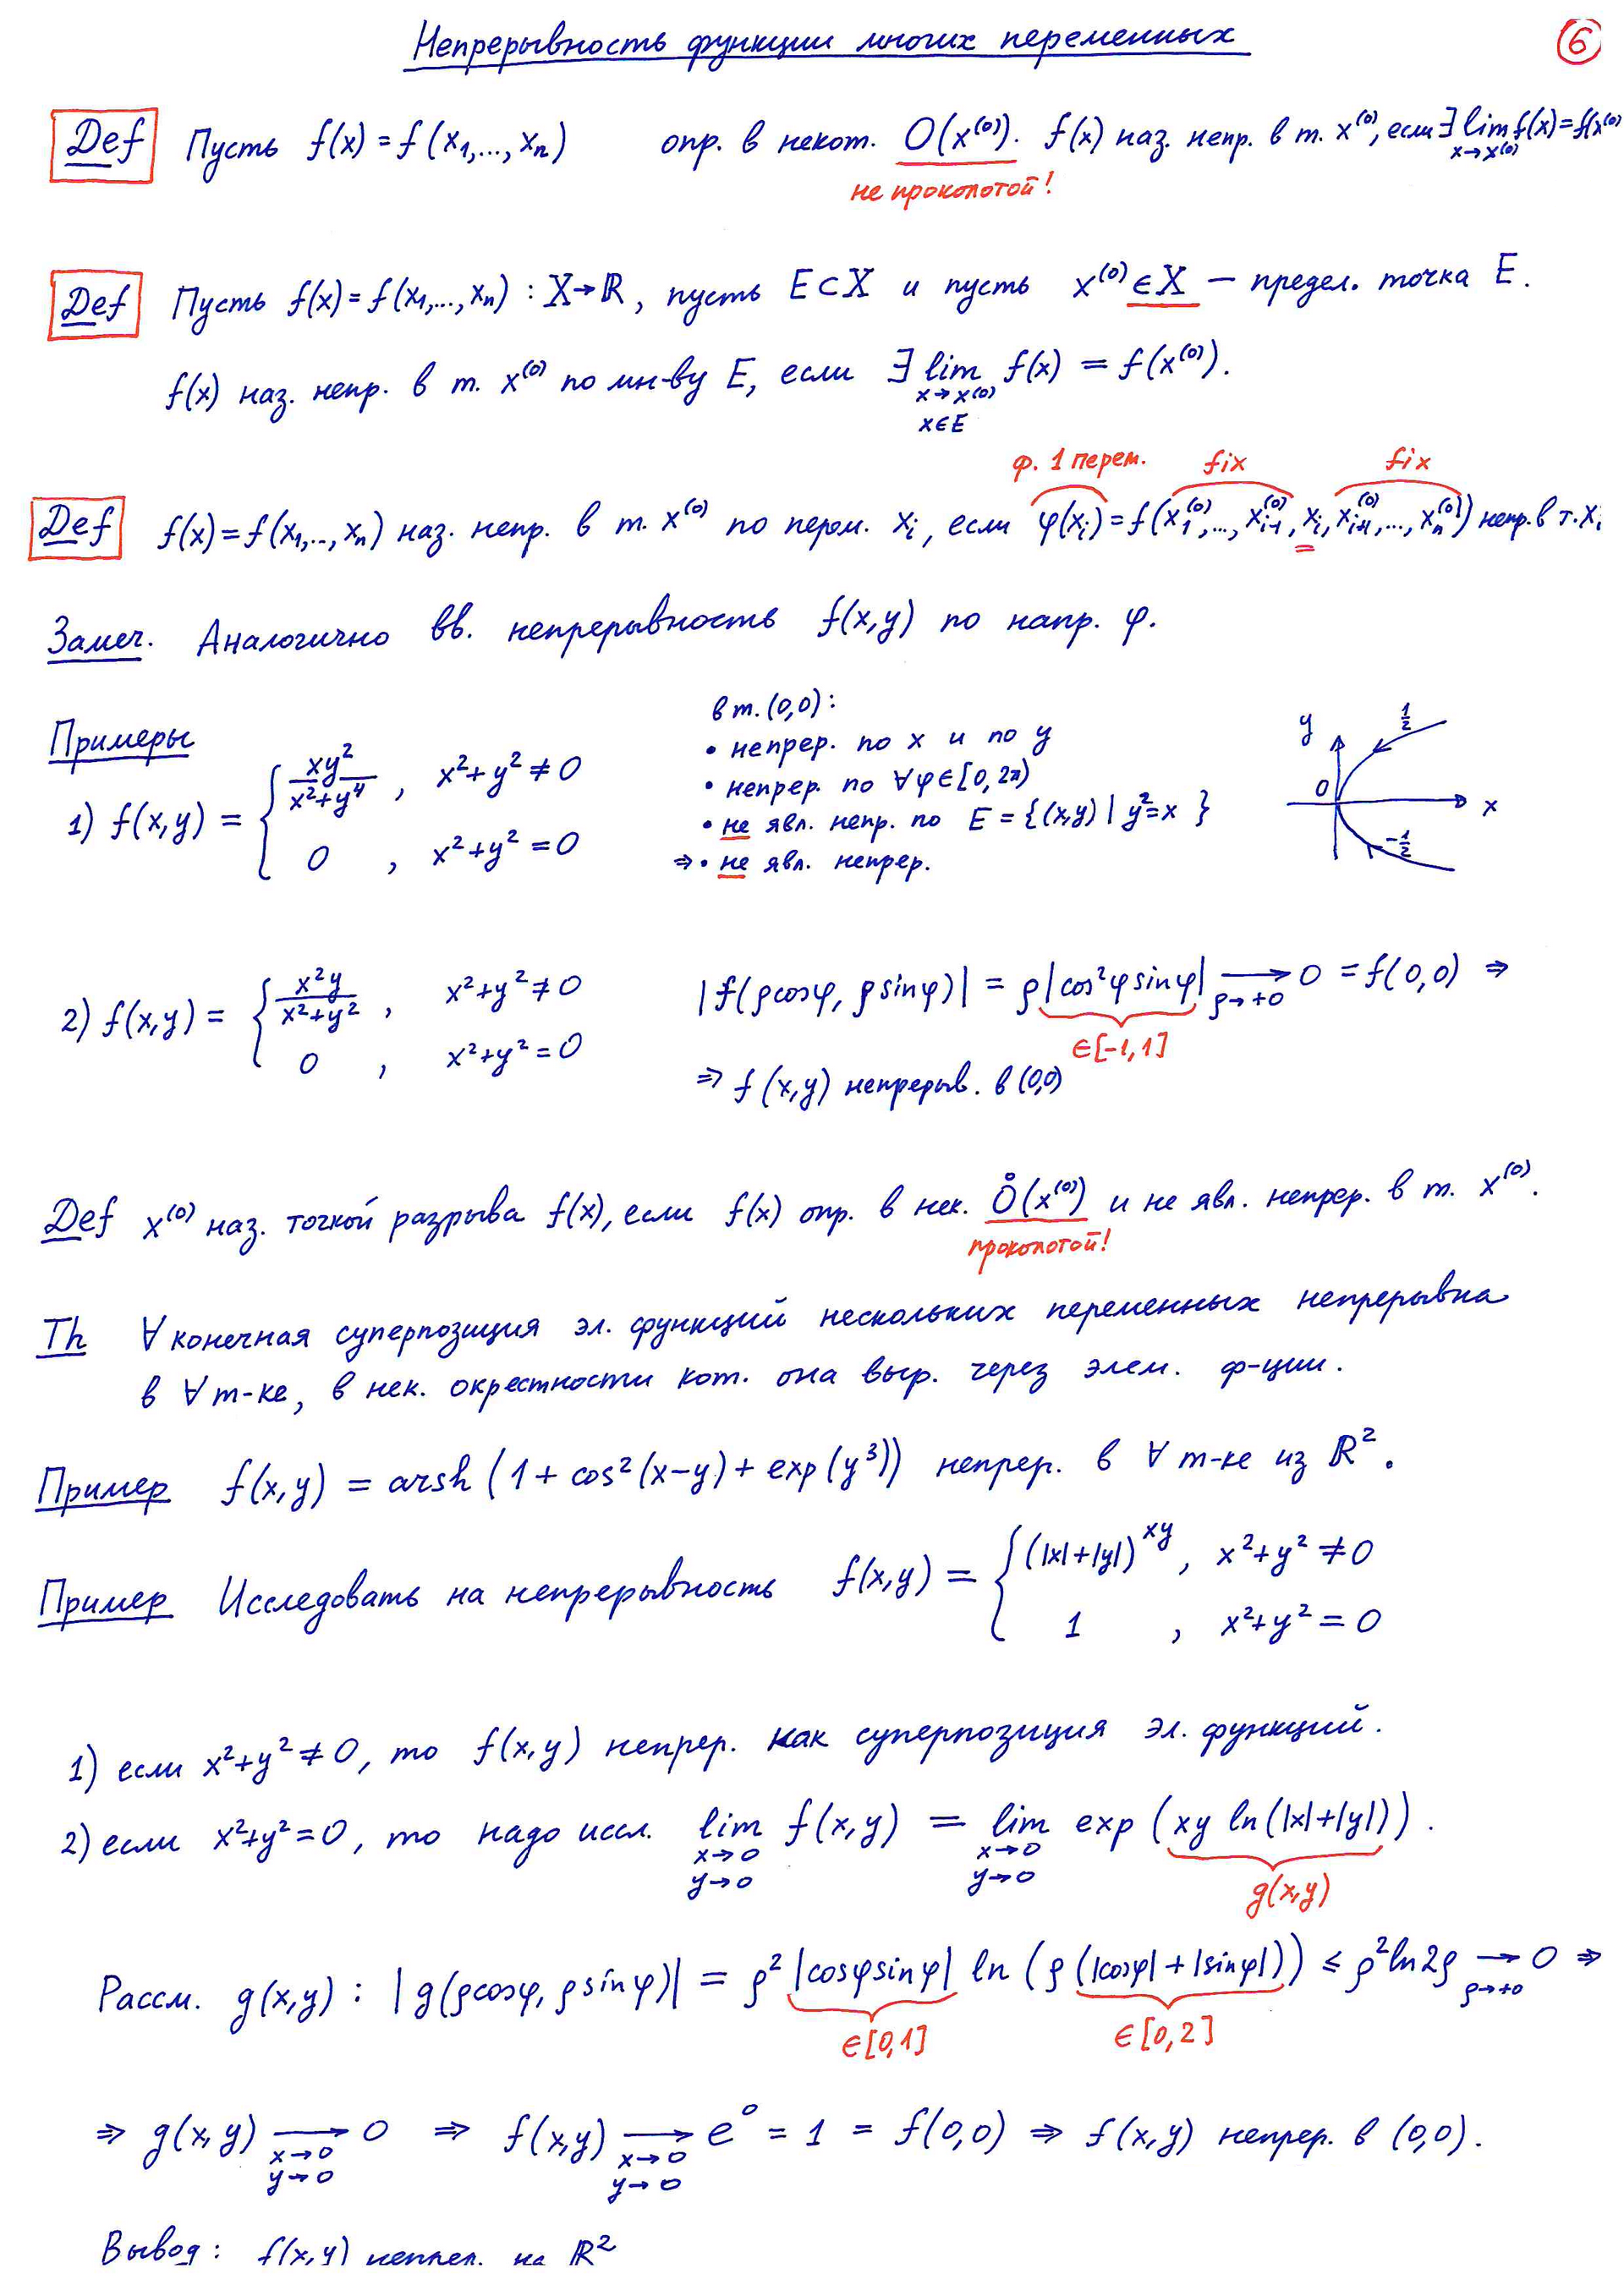 Непрерывность функции многих переменных
6
Def Пусть f(x) = f(x₁,..., xₙ) опр. в некот. O(x⁽⁰⁾). f(x) наз. непр. в т. x⁽⁰⁾, если ∃ lim f(x) = f(x⁽⁰⁾)
x→x⁽⁰⁾
не проколотой!
Def Пусть f(x) = f(x₁,..., xₙ) : X→ℝ, пусть E⊂X и пусть x⁽⁰⁾∈X — предел. точка E.
f(x) наз. непр. в т. x⁽⁰⁾ по мн-ву E, если ∃ lim f(x) = f(x⁽⁰⁾).
x→x⁽⁰⁾
x∈E
ф. 1 перем. fix fix
Def f(x) = f(x₁,..., xₙ) наз. непр. в т. x⁽⁰⁾ по перем. xᵢ, если φ(xᵢ) = f(x₁⁽⁰⁾,..., xᵢ₋₁⁽⁰⁾, xᵢ, xᵢ₊₁⁽⁰⁾,..., xₙ⁽⁰⁾) непр. в т. xᵢ
Замеч. Аналогично вв. непрерывность f(x,y) по напр. φ.
Примеры
1) f(x,y) = { xy²/(x²+y⁴), x²+y² ≠ 0
0, x²+y² = 0
в т. (0,0):
• непрер. по x и по y
• непрер. по ∀φ∈[0, 2π)
• не явл. непр. по E = {(x,y) | y²=x }
⇒ • не явл. непрер.
y
½
0
x
-½
2) f(x,y) = { x²y/(x²+y²), x²+y² ≠ 0
0, x²+y² = 0
|f(ρcosφ, ρsinφ)| = ρ|cos²φ sinφ| → 0 = f(0,0) ⇒
ρ→+0
∈[-1,1]
⇒ f(x,y) непрерыв. в (0,0)
Def x⁽⁰⁾ наз. точкой разрыва f(x), если f(x) опр. в нек. O̊(x⁽⁰⁾) и не явл. непрер. в т. x⁽⁰⁾.
проколотой!
Th ∀ конечная суперпозиция эл. функций нескольких переменных непрерывна
в ∀ т-ке, в нек. окрестности кот. она выр. через элем. ф-ции.
Пример f(x,y) = arsh (1 + cos²(x-y) + exp(y³)) непрер. в ∀ т-ке из ℝ².
Пример Исследовать на непрерывность f(x,y) = { (|x|+|y|)^xy, x²+y² ≠ 0
1, x²+y² = 0
1) если x²+y² ≠ 0, то f(x,y) непрер. как суперпозиция эл. функций.
2) если x²+y²=0, то надо иссл. lim f(x,y) = lim exp (xy ln(|x|+|y|)).
x→0 x→0
y→0 y→0
g(x,y)
Рассм. g(x,y) : |g(ρcosφ, ρsinφ)| = ρ²|cosφ sinφ| ln (ρ(|cosφ|+|sinφ|)) ≤ ρ²ln2ρ → 0 ⇒
ρ→+0
∈[0,1] ∈[0,2]
⇒ g(x,y) → 0 ⇒ f(x,y) → e⁰ = 1 = f(0,0) ⇒ f(x,y) непрер. в (0,0).
x→0 x→0
y→0 y→0
Вывод: f(x,y) непрер. на ℝ²